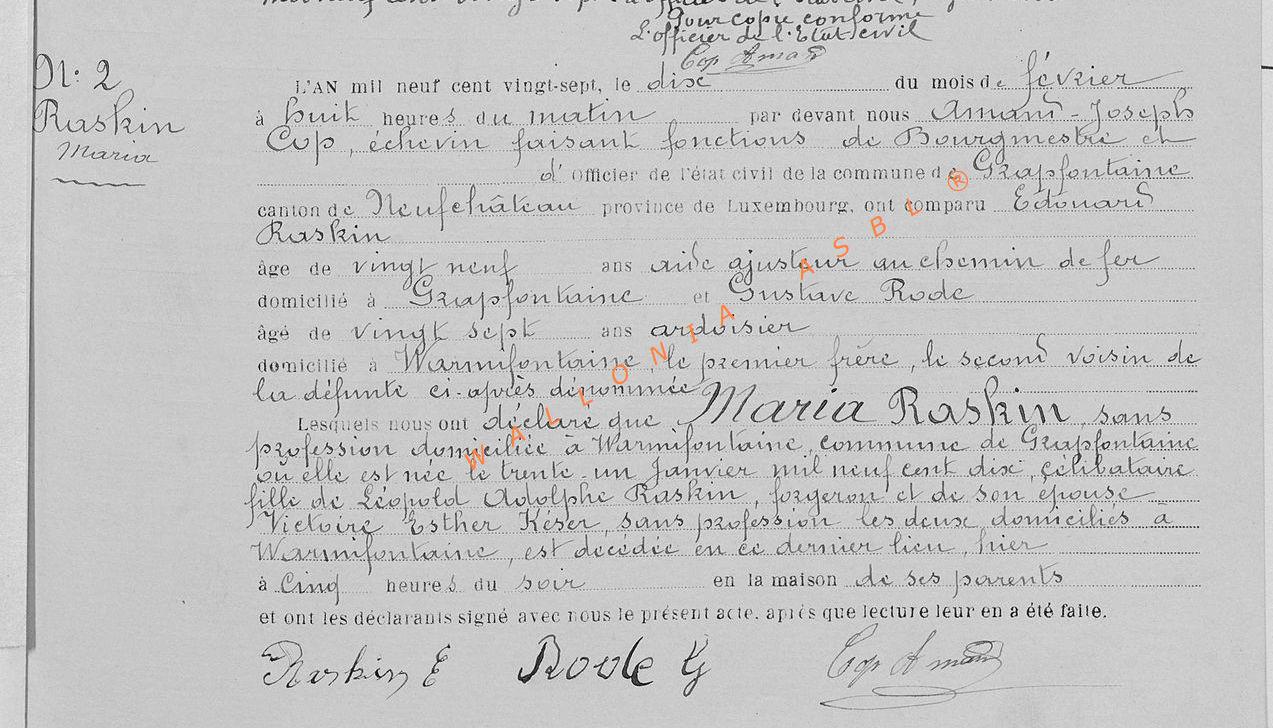 Pour copie conforme
L'officier de l'Etat civil
Cop Amand
N: 2
Raskin
Maria
L'AN mil neuf cent vingt-sept, le dix du mois de février
à huit heures du matin par devant nous Amand-Joseph
Cop, échevin faisant fonctions de Bourgmestre et
d' Officier de l'état civil de la commune de Grapfontaine
canton de Neufchâteau province de Luxembourg, ont comparu Edouard
Raskin
âge de vingt neuf ans aide ajusteur au chemin de fer
domicilié à Grapfontaine et Gustave Rode
âgé de vingt sept ans ardoisier
domicilié à Warmifontaine, le premier frère, le second voisin de
la défunte ci-après dénommée
Lesquels nous ont déclaré que Maria Raskin, sans
profession domiciliée à Warmifontaine, commune de Grapfontaine
où elle est née le trente-un Janvier mil neuf cent dix, célibataire
fille de Léopold Adolphe Raskin, forgeron et de son épouse
Victoire Esther Késer, sans profession les deux domiciliés à
Warmifontaine, est décédée en ce dernier lieu, hier
à cinq heures du soir en la maison de ses parents
et ont les déclarants signé avec nous le présent acte, après que lecture leur en a été faite.
Raskin E Rode G Cop Amand
WALLONIA ASBL ®